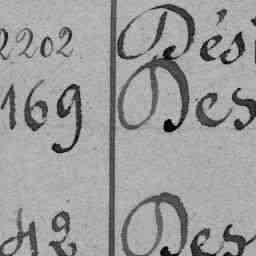 2202 Dési
169 Des
42 Des